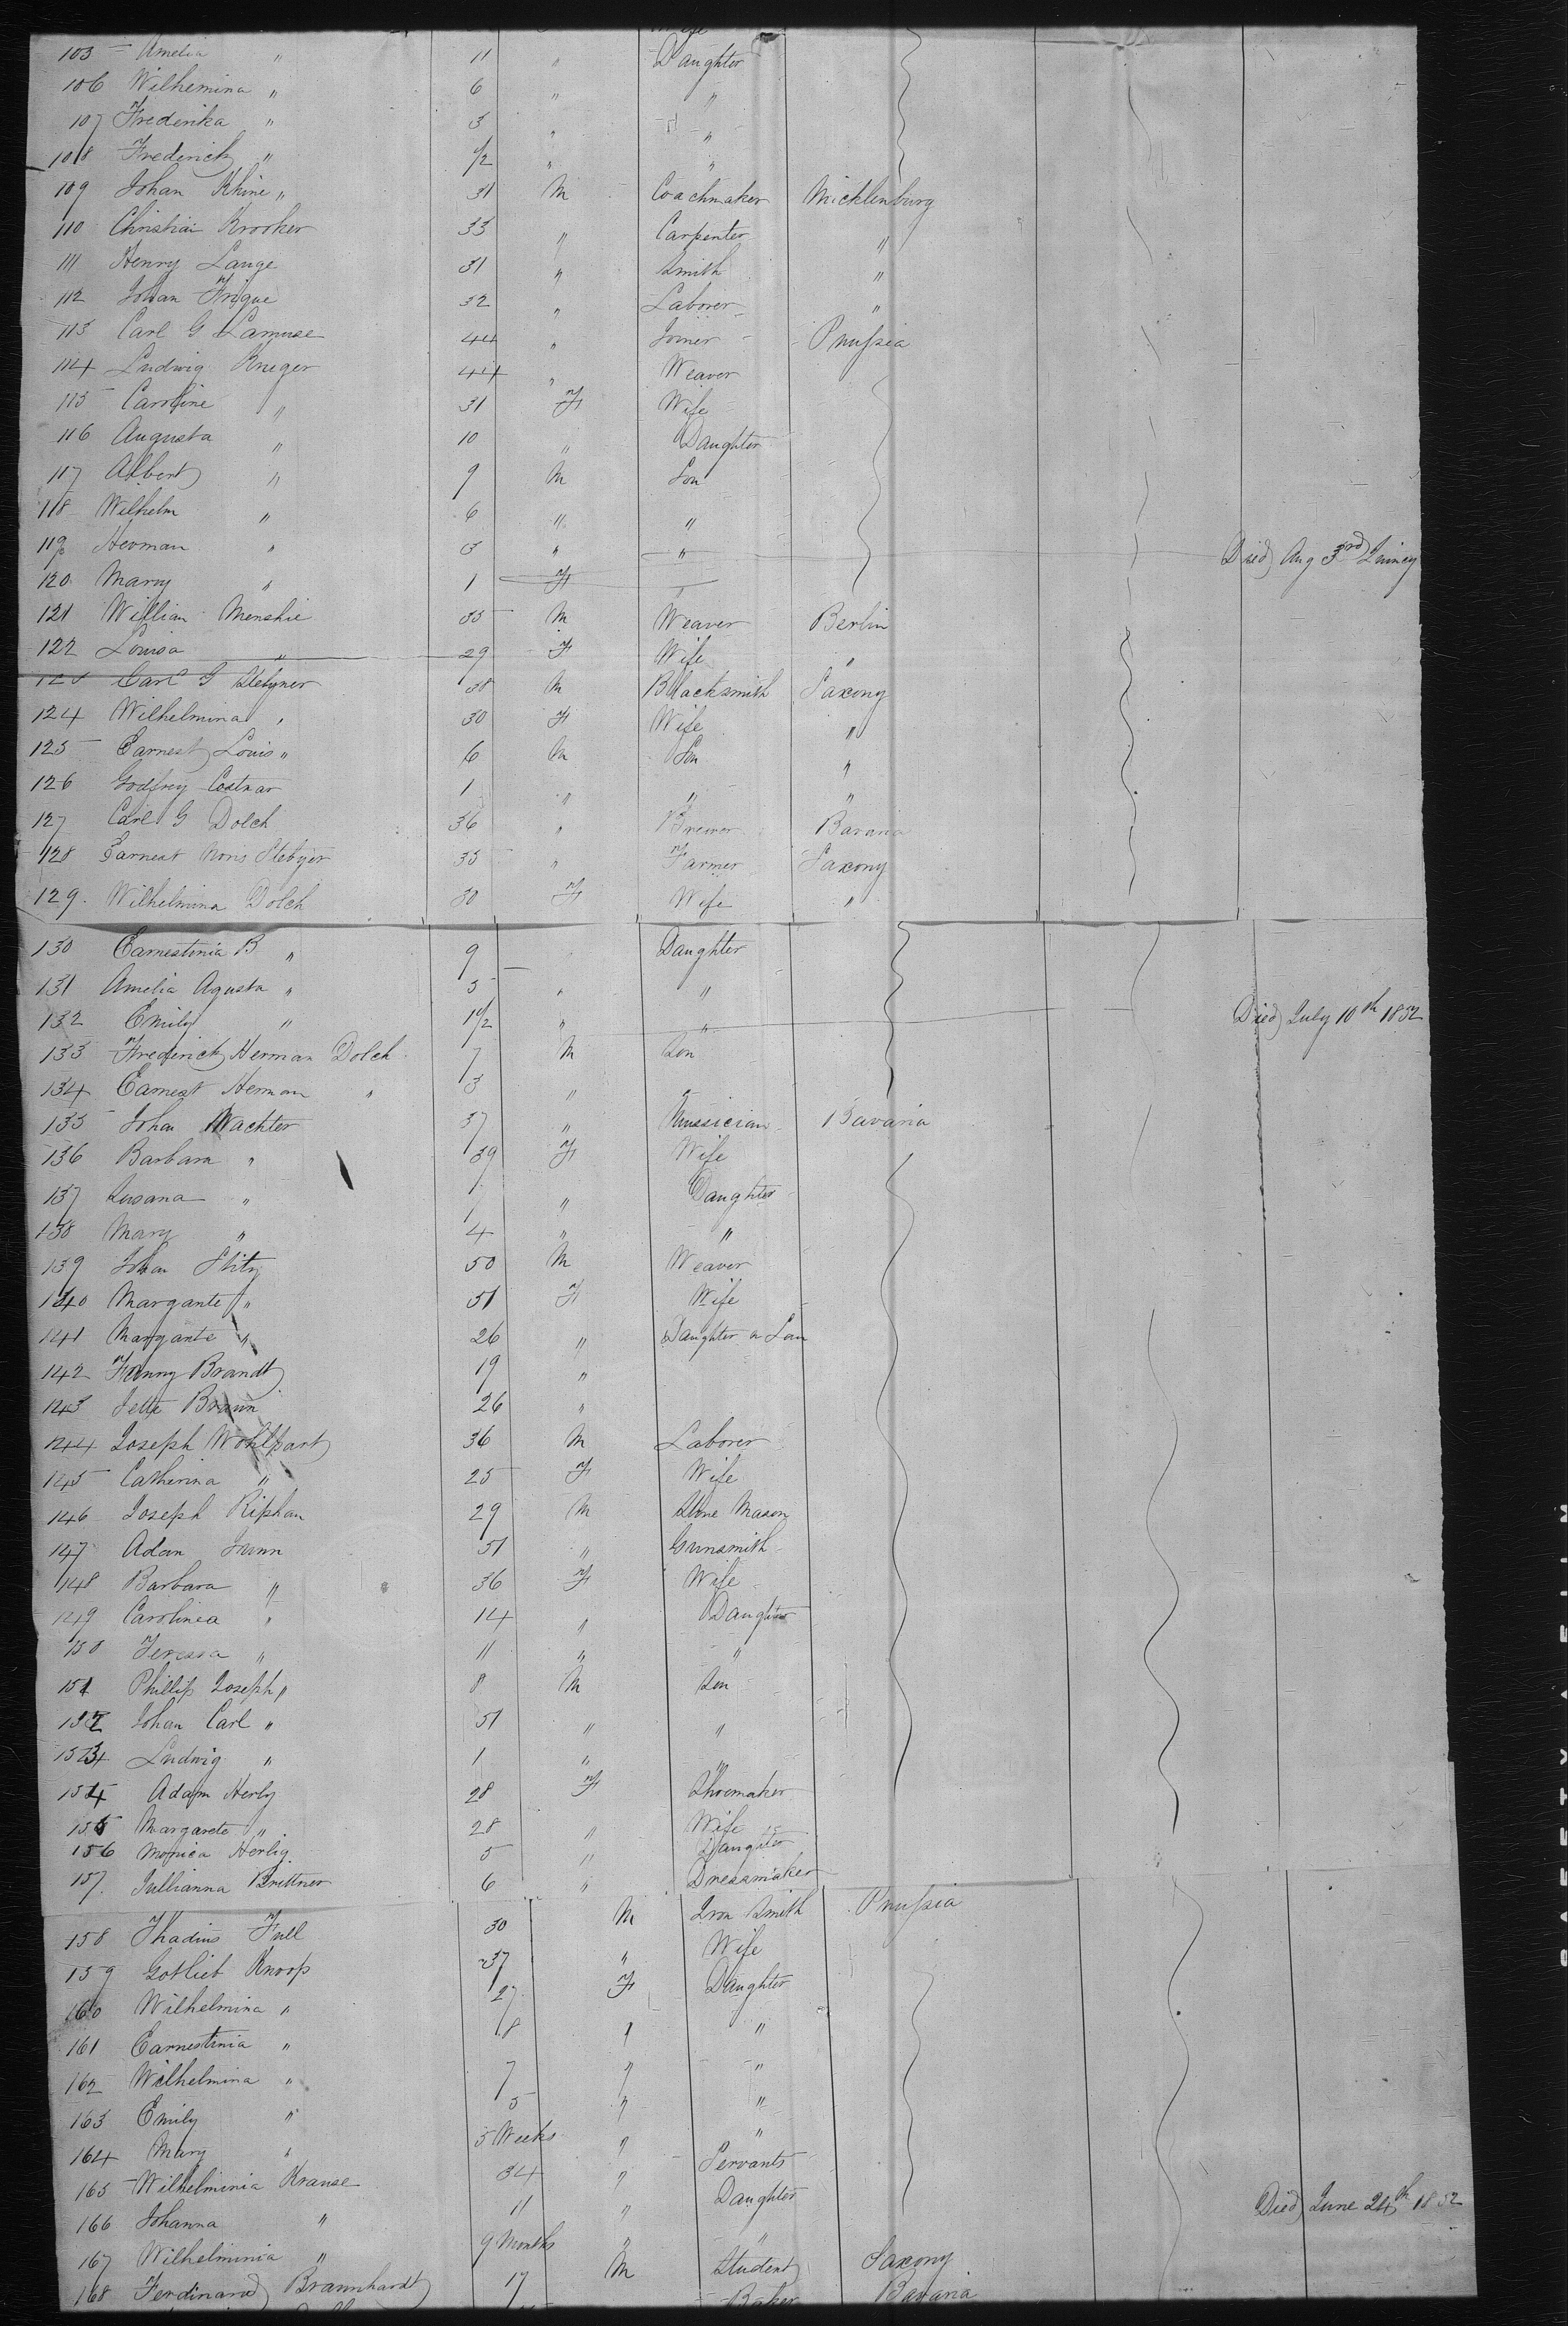 Wife
105 Amelia " 11 " Daughter
106 Wilhemina " 6 " "
107 Frederika " 3 " "
108 Frederick " 1/2 " "
109 Johan Khine " 31 M Coachmaker Micklenburg
110 Christian Krooker 33 " Carpenter "
111 Henry Lange 31 " Smith "
112 Johan Frique 32 " Laborer "
113 Carl G Lamuse 44 " Joiner Prussia
114 Ludwig Krieger 44 " Weaver
115 Caroline " 31 F Wife
116 Augusta " 10 " Daughter
117 Albert " 9 M Son
118 Wilhelm " 6 " "
119 Herman " 3 " " Died Aug 3rd Quincy
120 Marry " 1 F "
121 Willian Menshie 35 M Weaver Berlin
122 Louisa " 29 F Wife "
123 Carl G Stebyner 38 M Blacksmith Saxony
124 Wilhelmina " 30 F Wife "
125 Earnest Louis " 6 M Son "
126 Godfrey Costnar 1 " " "
127 Carl G Dolch 36 " Brewer Bavaria
128 Earnest Moris Stebyer 35 " Farmer Saxony
129. Wilhelmina Dolch 30 F Wife "
130 Earnestinia B " 9 Daughter
131 Amelia Agusta " 5 " "
132 Emily " 1 1/2 " " Died July 10th 1852
133 Frederick Herman Dolch 7 M Son
134 Earnest Herman " 3 "
135 Johan Wachter 37 " Mussician Bavaria
136 Barbara " 39 F Wife
137 Susana " 7 " Daughter
138 Mary " 4 " "
139 Johan Stitz 50 M Weaver
140 Margante " 51 F Wife
141 Margante " 26 " Daughter a Law
142 Fanny Brandt 19 "
143 Jette Braun 26 "
144 Joseph Wohlpart 36 M Laborer
145 Catherina " 25 F Wife
146 Joseph Riphan 29 M Stone Mason
147 Adam Gunn 51 " Gunsmith
148 Barbara " 36 F Wife
149 Carolinea " 14 " Daughter
150 Teressa " 11 " "
151 Phillip Joseph " 8 M Son
152 Johan Carl " 51 " "
153 Ludwig " 1 " "
154 Adam Herly 28 F Shoemaker
155 Margarete " 28 " Wife
156 Monica Herlig 5 " Daughter
157. Jullianna Brittner 6 " Dressmaker
158 Thadius Full 30 M Iron Smith Prussia
159 Gotliet Knoop 37 " Wife
160 Wilhelmina " 27 F Daughter
161 Earnestinia " 8 " "
162 Wilhelmina " 7 " "
163 Emily " 5 " "
164 Mary " 5 Weeks " "
165 Wilhelminia Krause 34 " Servants
166 Johanna " 11 " Daughter Died June 24th 1852
167 Wilhelminia " 9 Months " "
168 Ferdinand Braunhardt 17 M Student Saxony
Baker Bavaria